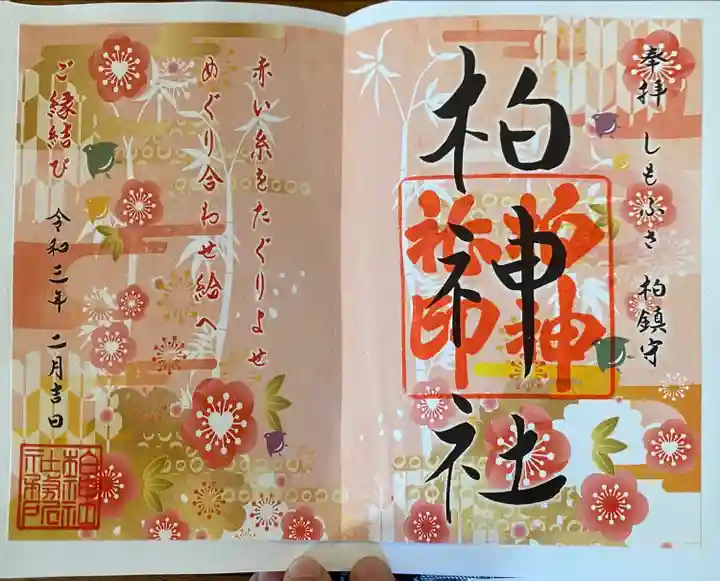 奉拝 しもふさ 柏鎮守
柏神社
赤い糸をたぐりよせ
めぐり合わせ給へ
ご縁結び
令和三年 二月吉日